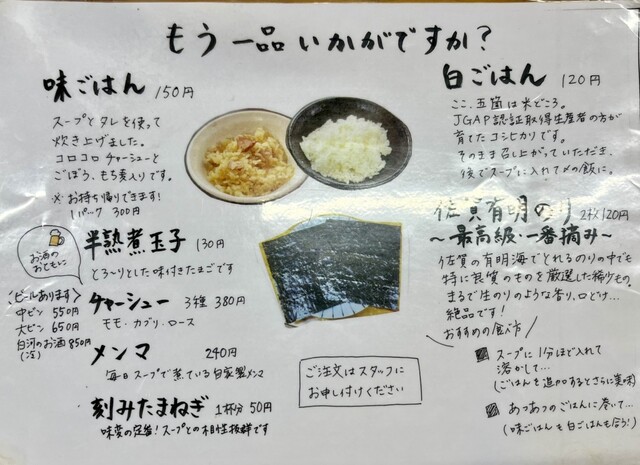 もう一品いかがですか?
味ごはん 150円
スープとタレを使って
炊き上げました。
コロコロチャーシューと
ごぼう、もち麦入りです。
※お持ち帰りできます!
1パック 300円
お酒の
おともに
半熟煮玉子 130円
とろ〜りとした味付きたまごです
〈ビールあります〉
中ビン 550円
大ビン 650円
白河のお酒 850円
チャーシュー 3種 380円
モモ・カブリ・ロース
メンマ 240円
毎日スープで煮ている自家製メンマ
刻みたまねぎ 1杯分 50円
味変の定番!スープとの相性抜群です
ご注文はスタッフに
お申し付けください
白ごはん 120円
ここ、五箇は米どころ。
JGAP認証取得生産者の方が
育てたコシヒカリです。
そのまま召し上がっていただき、
後でスープに入れて〆の飯に。
佐賀有明のり 2枚120円
〜最高級・一番摘み〜
佐賀の有明海でとれるのりの中でも
特に良質のものを厳選した稀少もの
まるで生のりのような香り、口どけ…
絶品です!
おすすめの食べ方
スープに1分ほど入れて
溶かして…
(ごはんを追加するとさらに美味)
あつあつのごはんに巻いて…
(味ごはんも白ごはんも合う!)